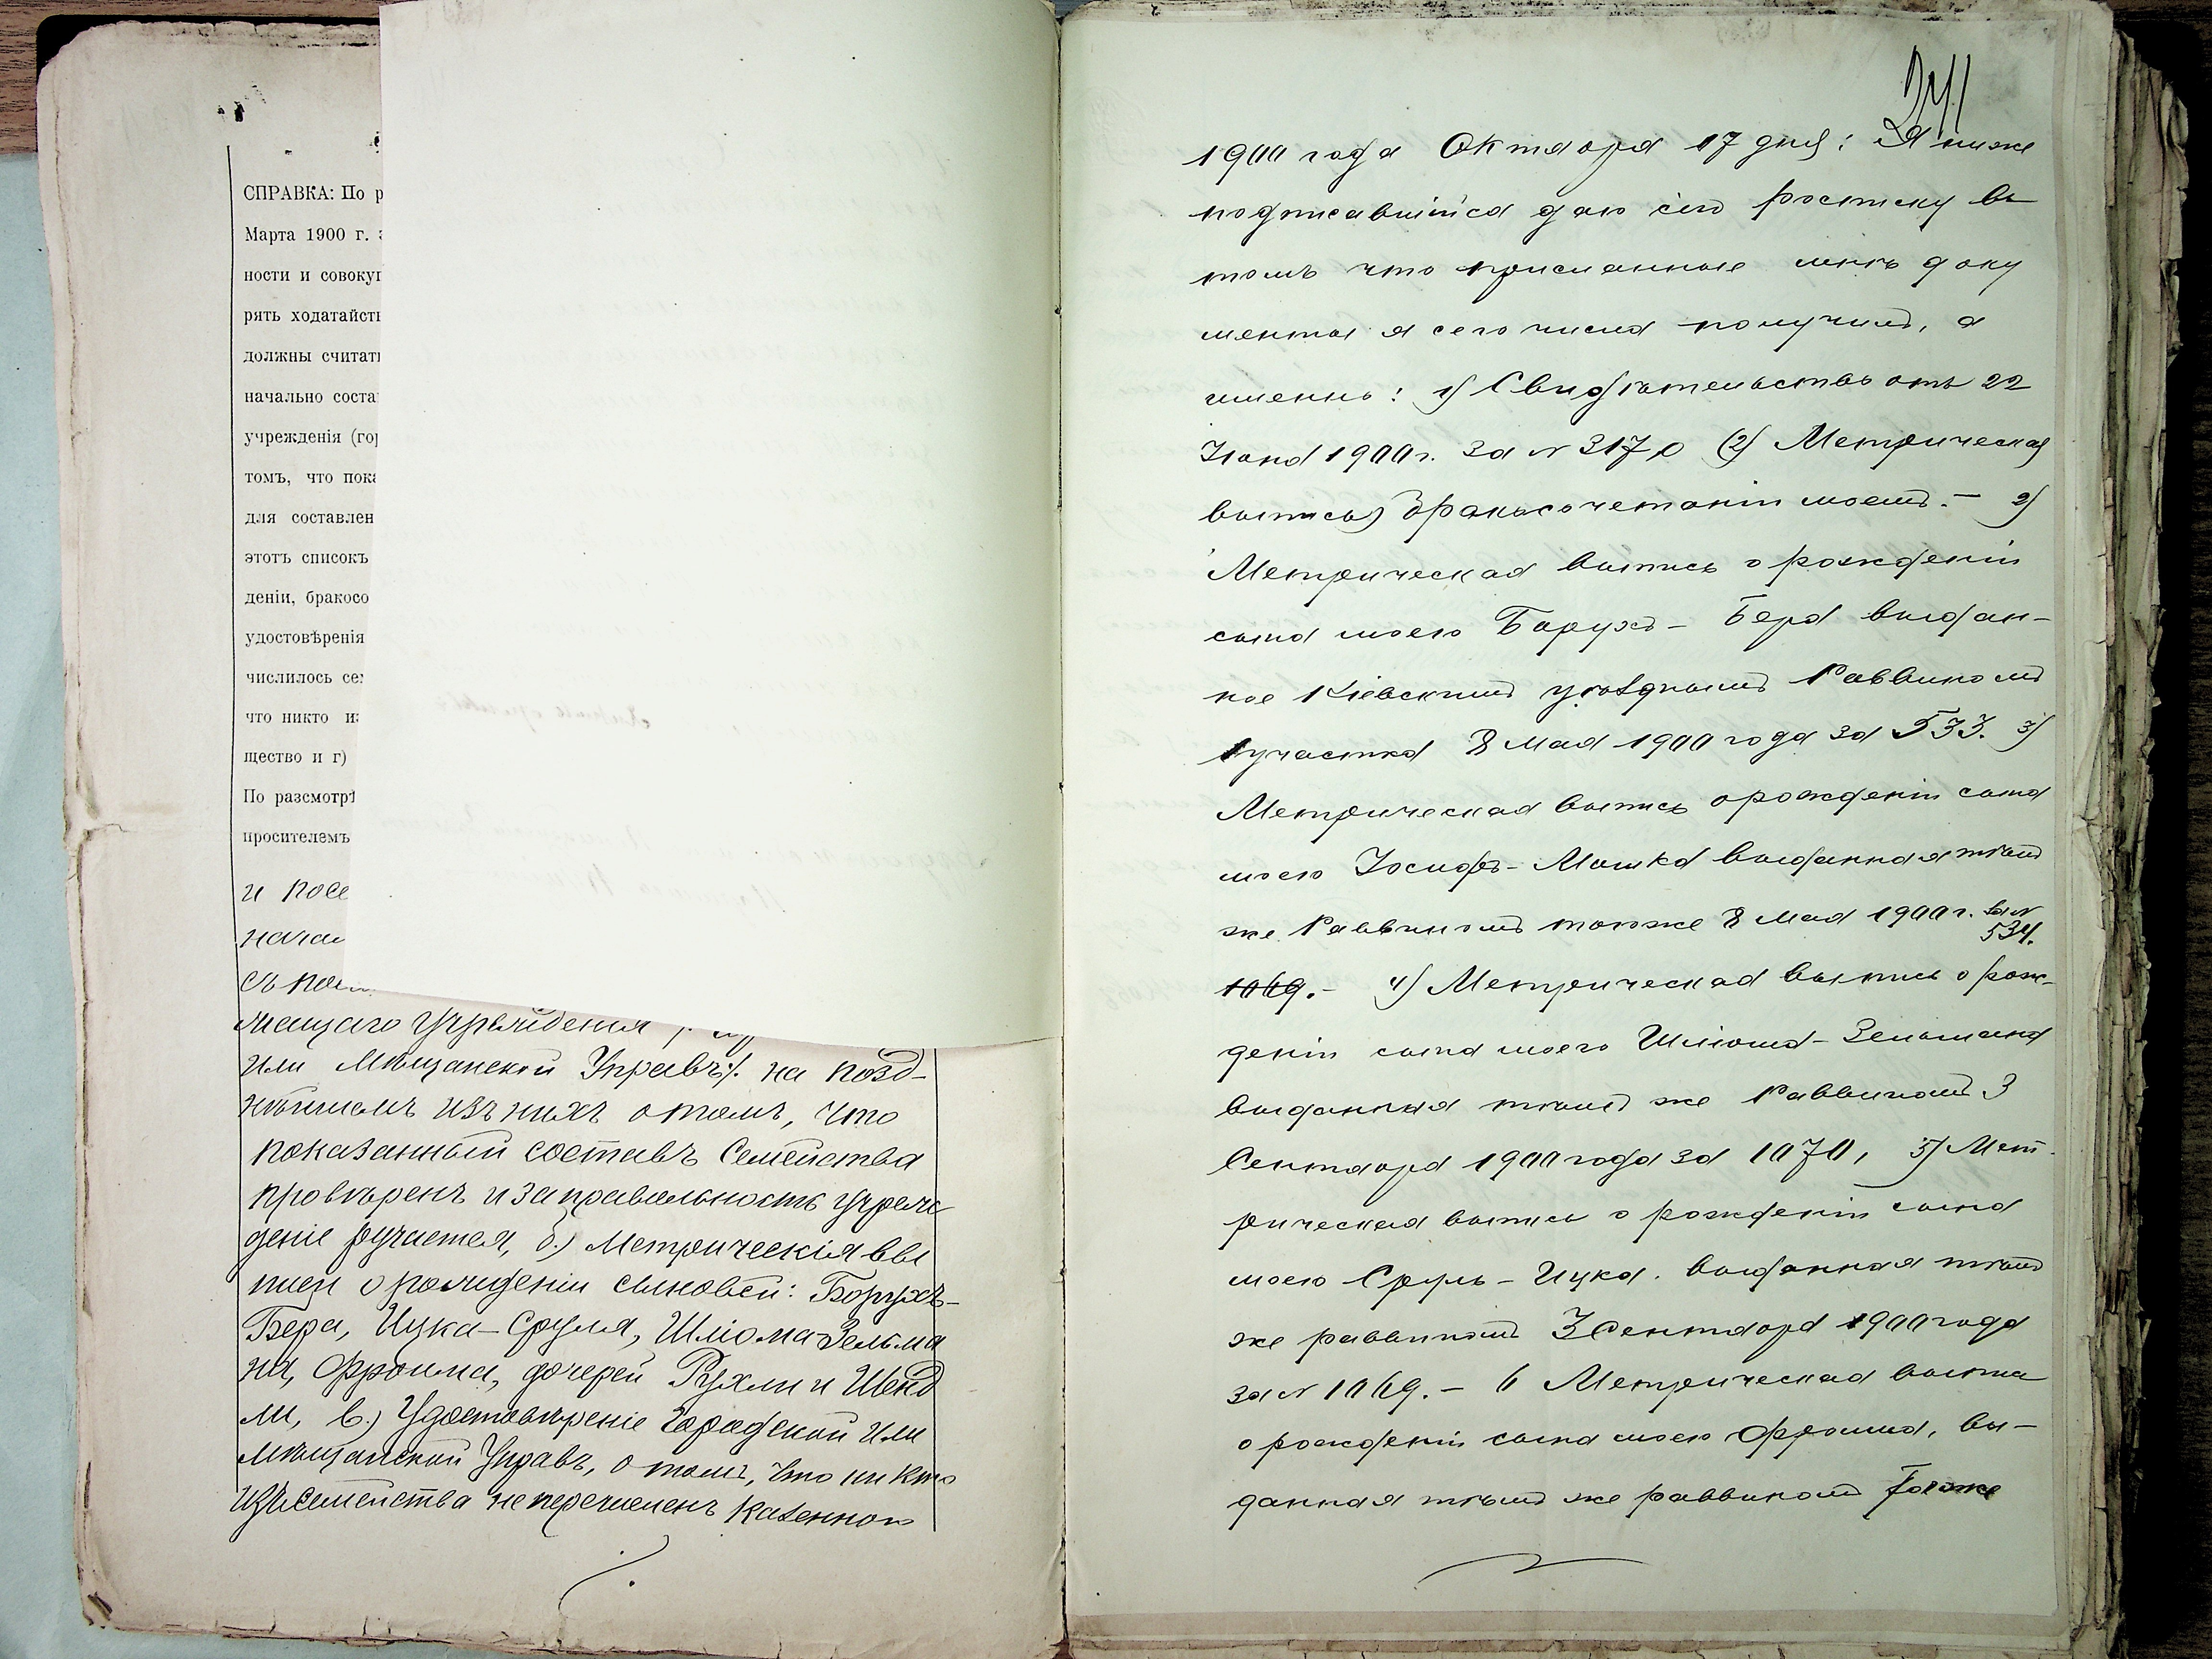 СПРАВКА: По р
Марта 1900 г. з
ности и совокуп
рять ходатайств
должны считать
начально соста
учрежденія (гор
томъ, что пока
для составлен
этотъ списокъ
деніи, бракосо
удостовѣренія
числилось сем
что никто из
щество и г)
По разсмотрѣ
просителемъ
и посе
начал
съ
жащаго Учрежденія
или Мѣщанской Управы/. на позд-
нѣйшемъ изъ нихъ о томъ, что
показанный составъ Семейства
провѣренъ и за правильность учреж
деніе ручается, б.) Метрическія вы
писи о рожденіи сыновей: Борухъ-
Бера, Ицка-Сруля, Шліома-Зельма
на, Фроима, дочерей Рухли и Шенд
ли, в.) Удостовѣреніе Городской или
Мѣщанской Управъ, о томъ, что ни кто
изъ семейства не перечисленъ казенною
241
1900 года Октября 17 дня: Я ниже
подписавшійся даю сію росписку въ
томъ что присланные мнѣ доку
менты я сего числа получилъ, а
именно: 1) Свидѣтельство отъ 22
Іюня 1900 г. за № 3170 (2) Метрическая
выпись) бракосочетаніи моемъ. - 2)
Метрическая выпись о рожденіи
сына моего Борухъ - Бера выдан-
ное Кіевскимъ уѣзднымъ Раввиномъ
1 участка 8 Мая 1900 года за 533. 3)
Метрическая выпись о рожденіи сына
моего Іосифъ - Мошка выданная тѣмъ
же Раввиномъ тоже 8 Мая 1900 г. за №
534.
1069. - 4) Метрическая выпись о рож-
деніи сына моего Шліома - Зельмана
выданная тѣмъ же Раввиномъ 3
Сентября 1900 года за 1070, 5) Мет-
рическая выпись о рожденіи сына
моего Сруль - Ицка. выданная тѣмъ
же раввиномъ 3 Сентября 1900 года
за № 1069. - 6 Метрическая выпись
о рожденіи сына моего Фроима, вы-
данная тѣмъ же раввиномъ тоже